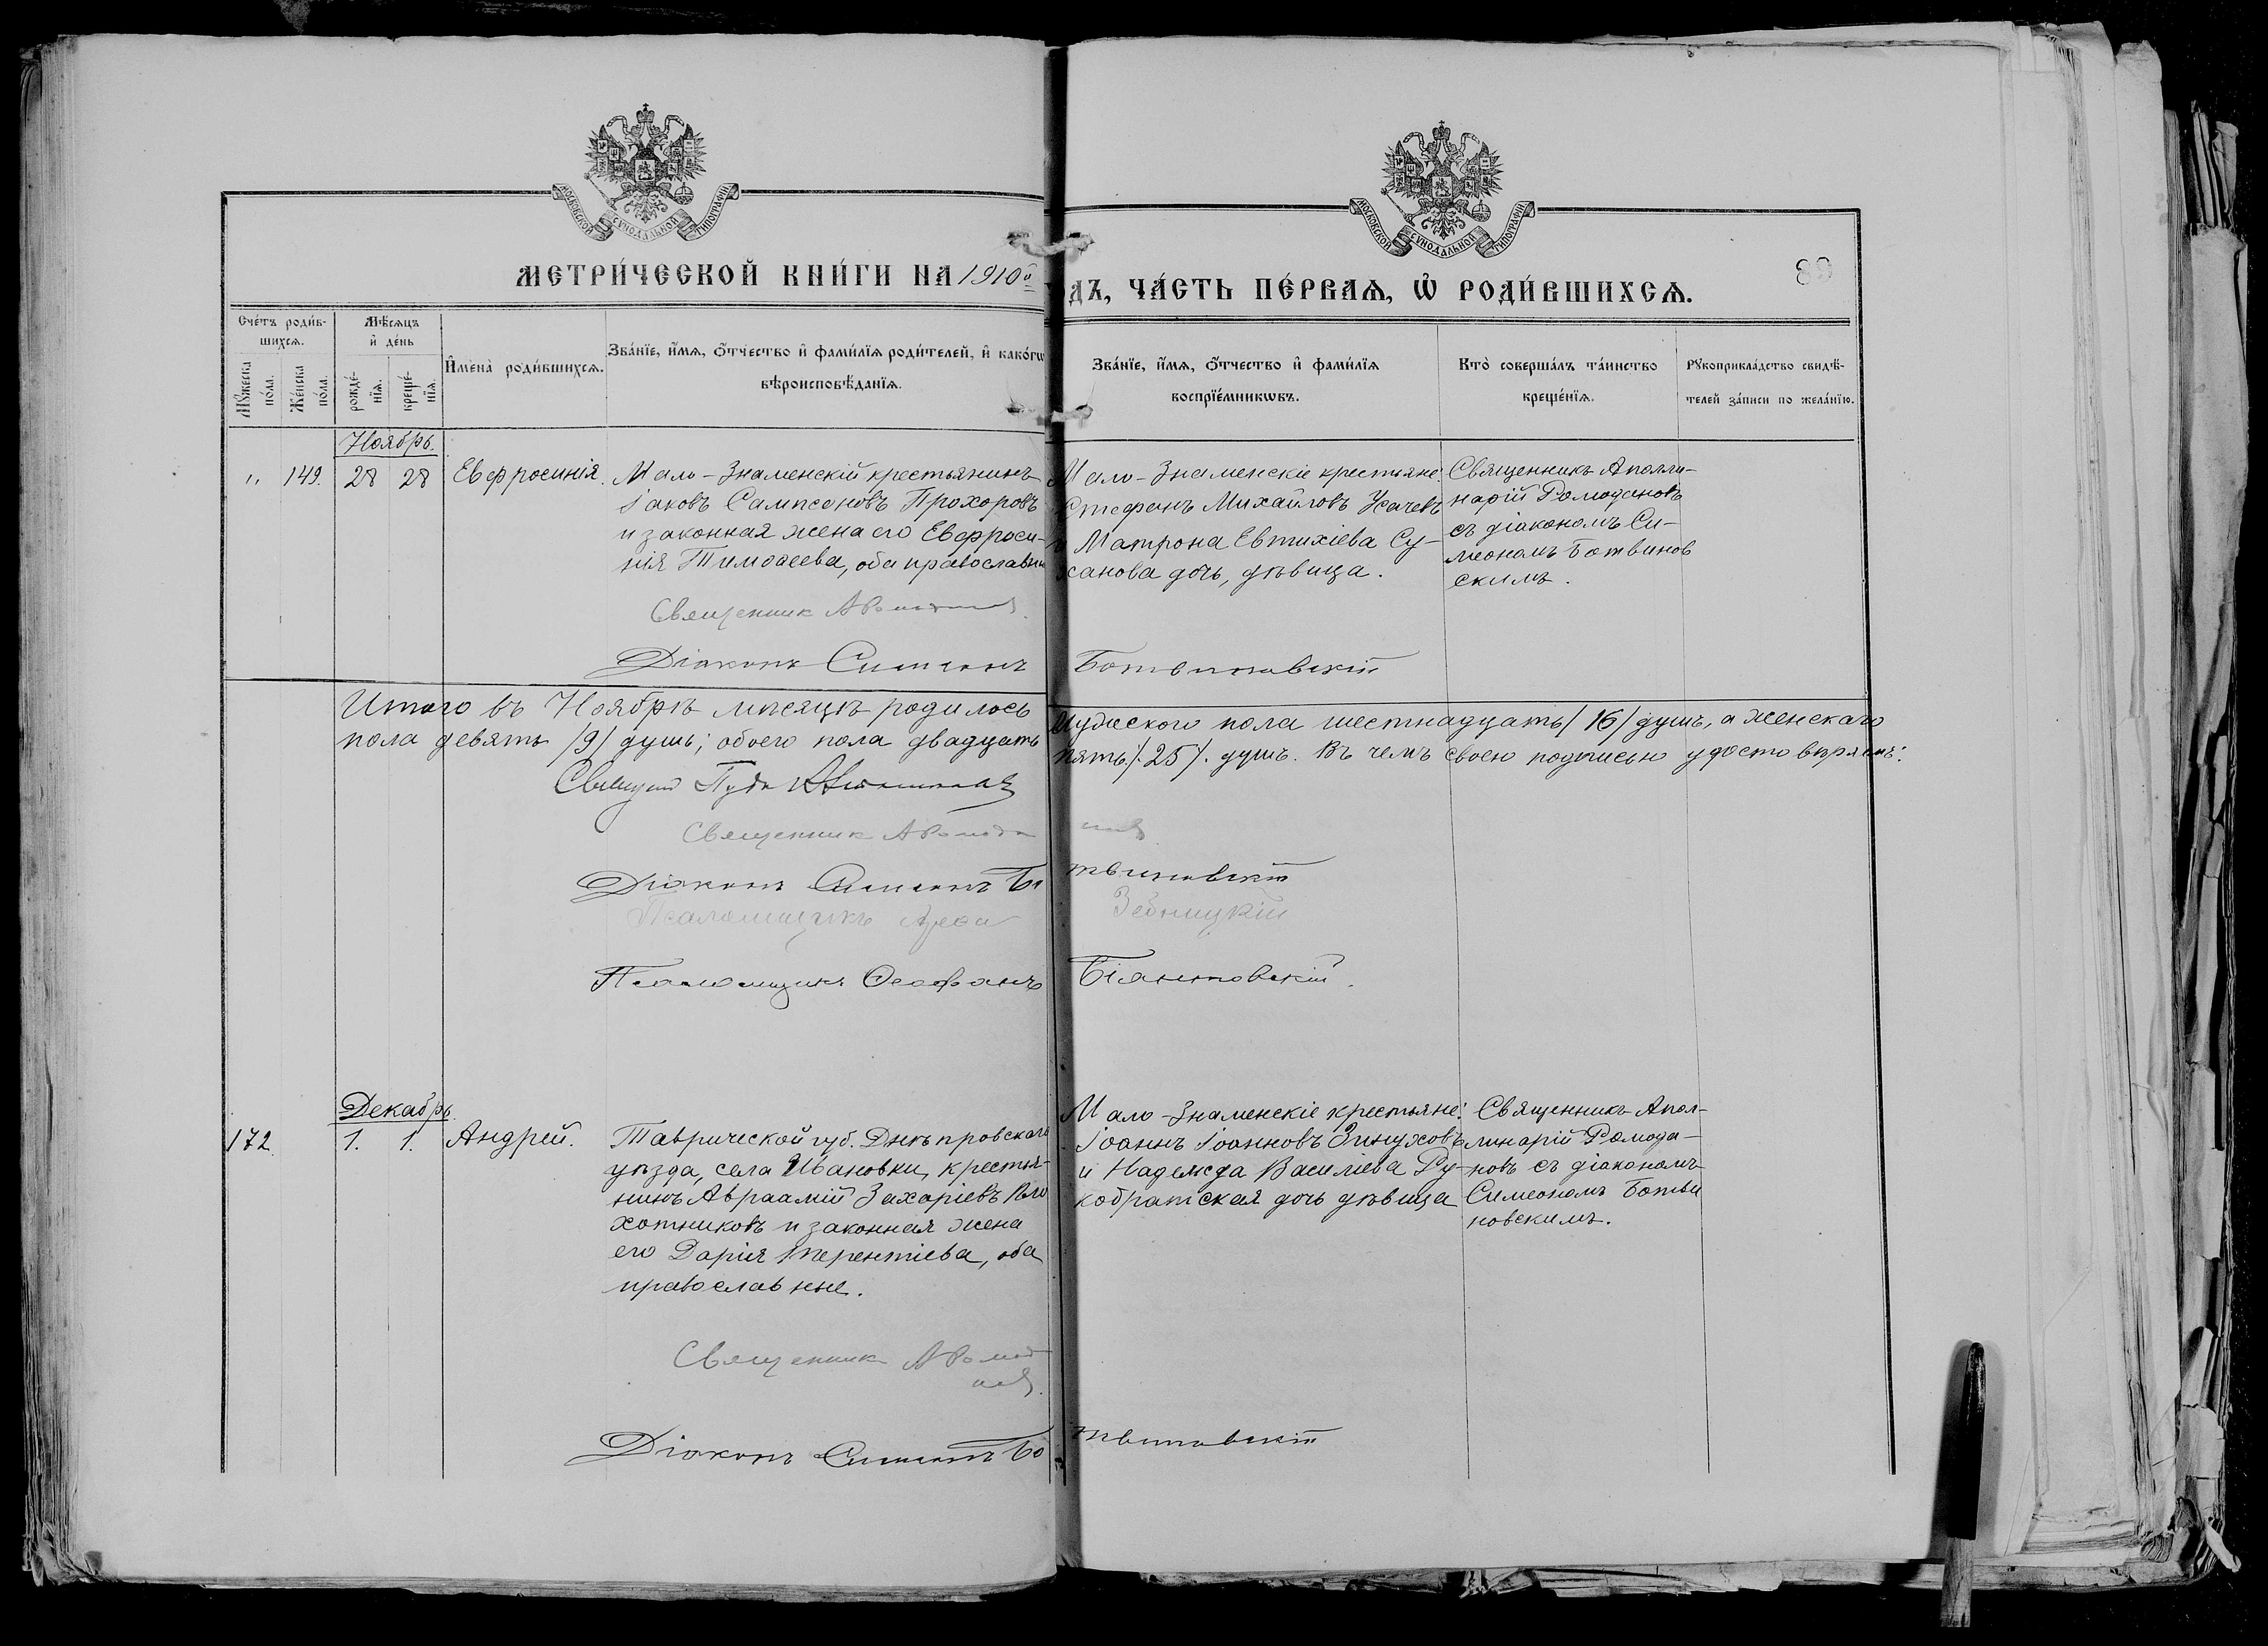 МОСКОВСКОЙ СѴНОДАЛЬНОЙ ТИПОГРАФІИ
МОСКОВСКОЙ СѴНОДАЛЬНОЙ ТИПОГРАФІИ
МЕТРИ́ЧЕСКОЙ КНИ́ГИ НА 1910й
ДЪ, ЧА́СТЬ ПЕ́РВАѦ, Ѡ РОДИ́ВШИХСѦ.
89
Сче́тъ роди́в-
шихсѧ.
Мꙋ́жеска по́ла.
Же́нска по́ла.
Мѣ́сѧцъ
и҆ де́нь
рожде́-
нїѧ.
креще́-
нїѧ.
И҆мена̀ роди́вшихсѧ.
Зва́нїе, и҆́мѧ, о҆́тчество и҆ фами́лїѧ роди́телей, и҆ како́гѡ
вѣроисповѣ́данїѧ.
Зва́нїе, и҆́мѧ, о҆́тчество и҆ фами́лїѧ
воспрїе́мникѡвъ.
Кто̀ соверша́лъ та́инство
креще́нїѧ.
Рꙋкоприкла́дство свидѣ́-
телей за́писи по жела́нїю.
Ноябрь.
" 149. 28 28 Евфросинія.
Мало-Знаменскій крестьянинъ
Іаковъ Сампсоновъ Прохоровъ
и законная жена его Евфроси-
нія Тимоѳеева, оба православны
Мало-Знаменскіе крестьяне:
Стефанъ Михайловъ Усачевъ
и Матрона Евтихіева Су-
ханова дочь, дѣвица.
Священникъ Аполли-
нарій Ромодановъ
съ діакономъ Си-
меономъ Ботвинов
скимъ.
Священник А Ромоданов.
Діаконъ Симеонъ Ботвиновскій
Итого въ Ноябрѣ мѣсяцѣ родилось Мужескаго пола шестнадцать /16/ душъ, а женскаго
пола девять /9/ душъ; обоего пола двадцать пять /.25/. душъ. Въ чемъ своею подписью удостовѣряемъ:
Священник А Ромоданов
Діаконъ Симеонъ Ботвиновскій
Псаломщикъ Зебницкій
Псаломщикъ Ѳеофанъ Біантовскій.
Декабрь
172 1. 1. Андрей.
Таврической губ. Днѣпровскаго
уѣзда, села Ивановки, крестья-
нинъ Авраамій Захаріевъ Пло
хотниковъ и законная жена
его Дарія Терентіева, оба
православные.
Мало-Знаменскіе крестьяне:
Іоаннъ Іоанновъ Зинуховъ
и Надежда Василіева Ру-
кобратская дочь дѣвица
Священникъ Апол-
линарій Ромода-
новъ съ діакономъ
Симеономъ Ботви
новскимъ.
Священник А Ромода
нов.
Діаконъ Симеонъ Ботвиновскій